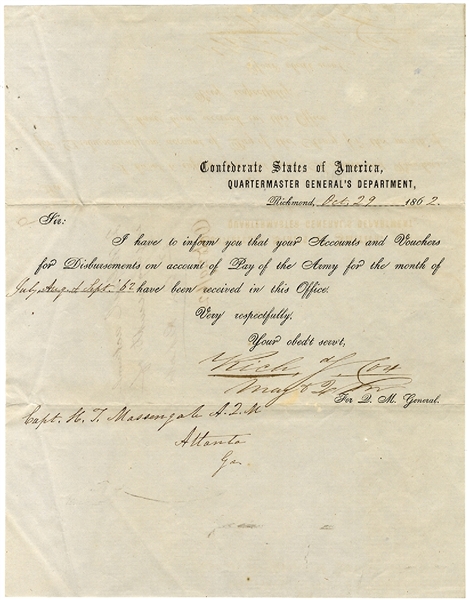 Confederate States of America,
QUARTERMASTER GENERAL'S DEPARTMENT,
Richmond, Oct. 29 1862.
Sir:
I have to inform you that your Accounts and Vouchers
for Disbursements on account of Pay of the Army for the month of
July, August & Sept. 62 have been received in this Office.
Very respectfully,
Your obed't serv't,
Rich. Cox
Maj & Q.
For Q. M. General.
Capt. H. T. Massengale A. Q. M
Atlanta
Ga.